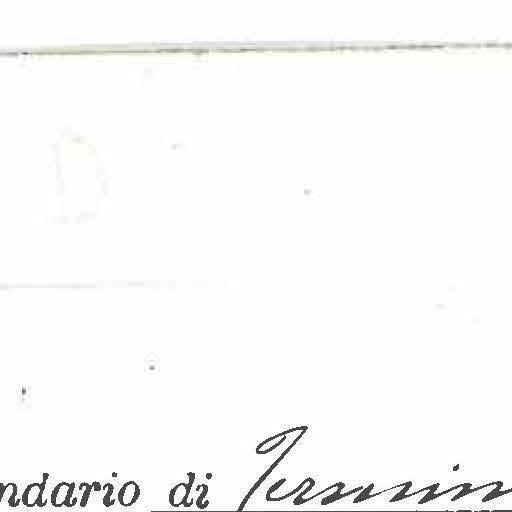 ndario di Termin